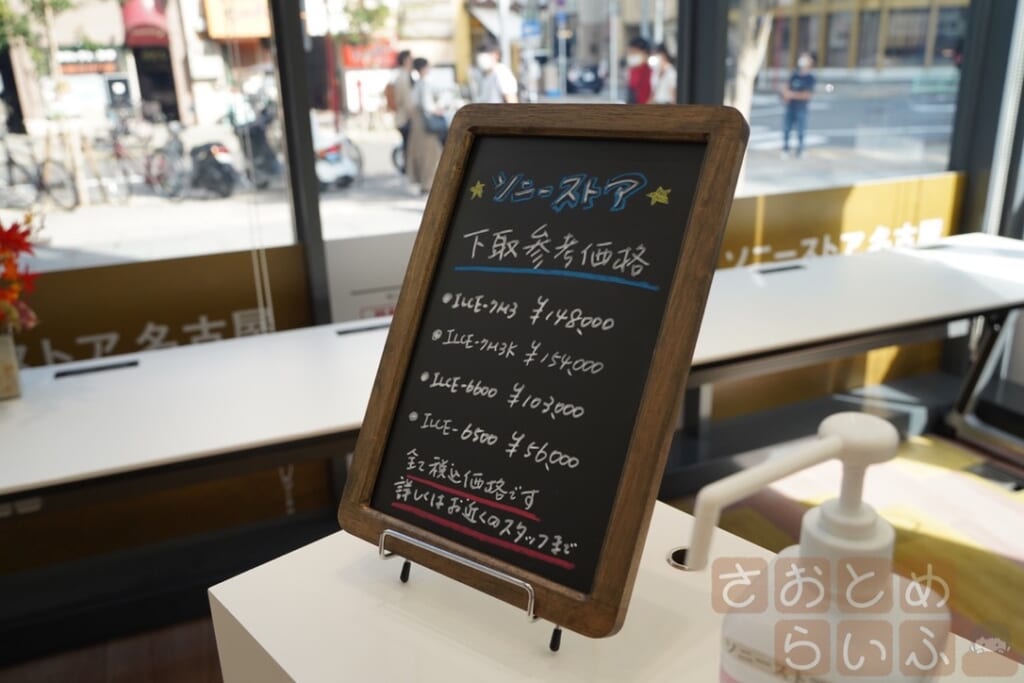 ソニーストア
下取参考価格
ILCE-7M3 ¥148,000
ILCE-7M3K ¥154,000
ILCE-6600 ¥103,000
ILCE-6500 ¥56,000
全て税込価格です
詳しくはお近くのスタッフまで
ソニーストア名古屋
ストア名古屋
さおとめ
らいふ
ソニース